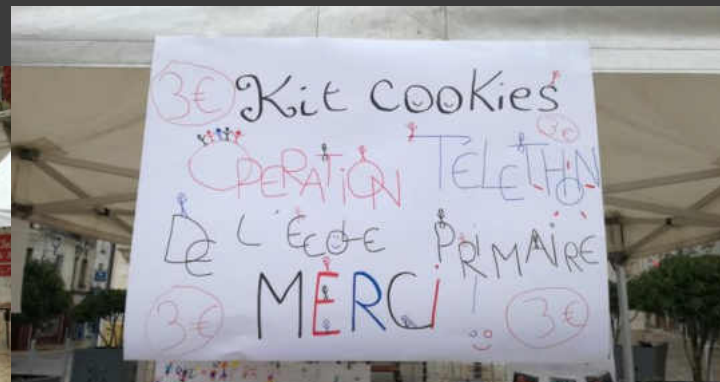 3€ Kit cookies
3€
OPERATION TELETHON
DE L'ÉCOLE PRIMAIRE
MERCI !
3€ 3€